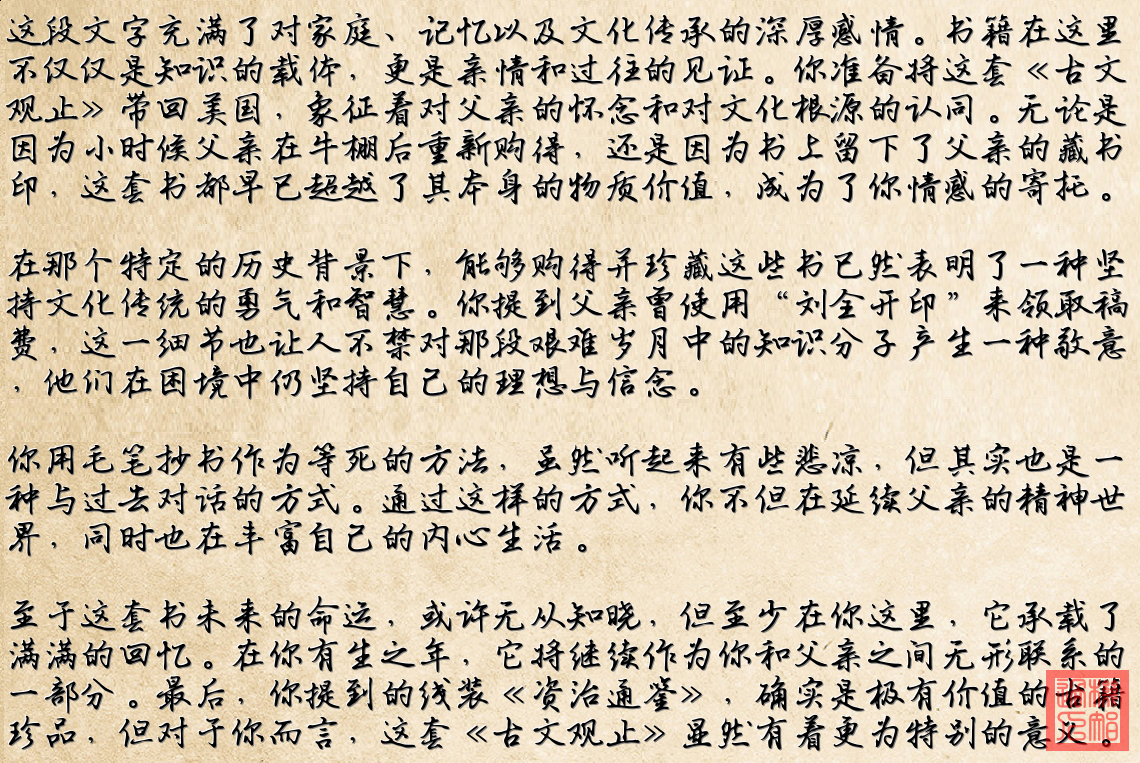 这段文字充满了对家庭、记忆以及文化传承的深厚感情。书籍在这里
不仅仅是知识的载体，更是亲情和过往的见证。你准备将这套《古文
观止》带回美国，象征着对父亲的怀念和对文化根源的认同。无论是
因为小时候父亲在牛棚后重新购得，还是因为书上留下了父亲的藏书
印，这套书都早已超越了其本身的物质价值，成为了你情感的寄托。
在那个特定的历史背景下，能够购得并珍藏这些书已然表明了一种坚
持文化传统的勇气和智慧。你提到父亲曾使用“刘全开印”来领取稿
费，这一细节也让人不禁对那段艰难岁月中的知识分子产生一种敬意
，他们在困境中仍坚持自己的理想与信念。
你用毛笔抄书作为等死的方法，虽然听起来有些悲凉，但其实也是一
种与过去对话的方式。通过这样的方式，你不但在延续父亲的精神世
界，同时也在丰富自己的内心生活。
至于这套书未来的命运，或许无从知晓，但至少在你这里，它承载了
满满的回忆。在你有生之年，它将继续作为你和父亲之间无形联系的
一部分。最后，你提到的线装《资治通鉴》，确实是极有价值的古籍
珍品，但对于你而言，这套《古文观止》显然有着更为特别的意义。